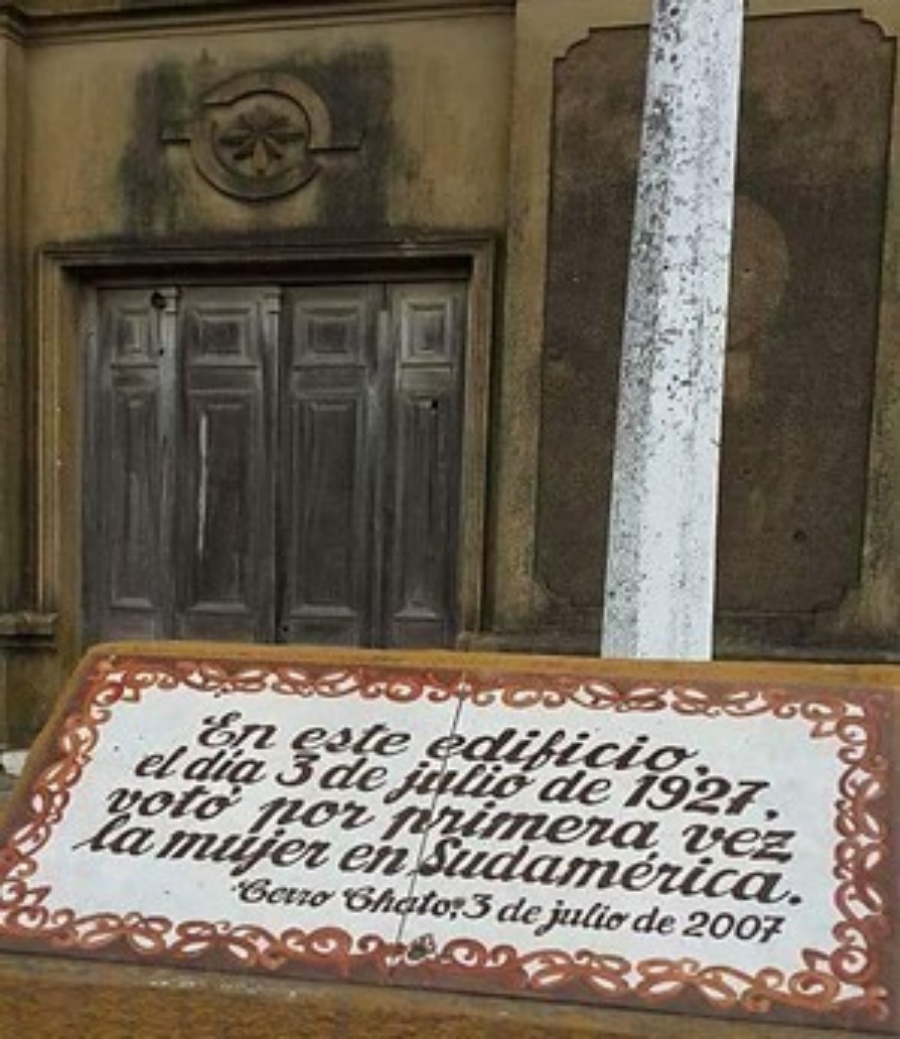 En este edificio,
el día 3 de julio de 1927,
votó por primera vez
la mujer en Sudamérica.
Cerro Chato, 3 de julio de 2007